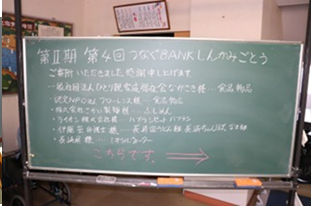 第Ⅱ期 第4回 つなぐBANKしんかみごとう
ご寄附いただきました 感謝申し上げます
・一般社団法人ひとり親家庭福祉会ながさき様 ── 食品・物品
・認定NPO法人 フローレンス様 ── 食品・物品
・株式会社 製麺 様
・ライオン株式会社様 ── ハブラシセット ハブラシ
・伊藤 様 ── 長崎 長崎ちゃんぽん
・長崎県 様
こちらです。→